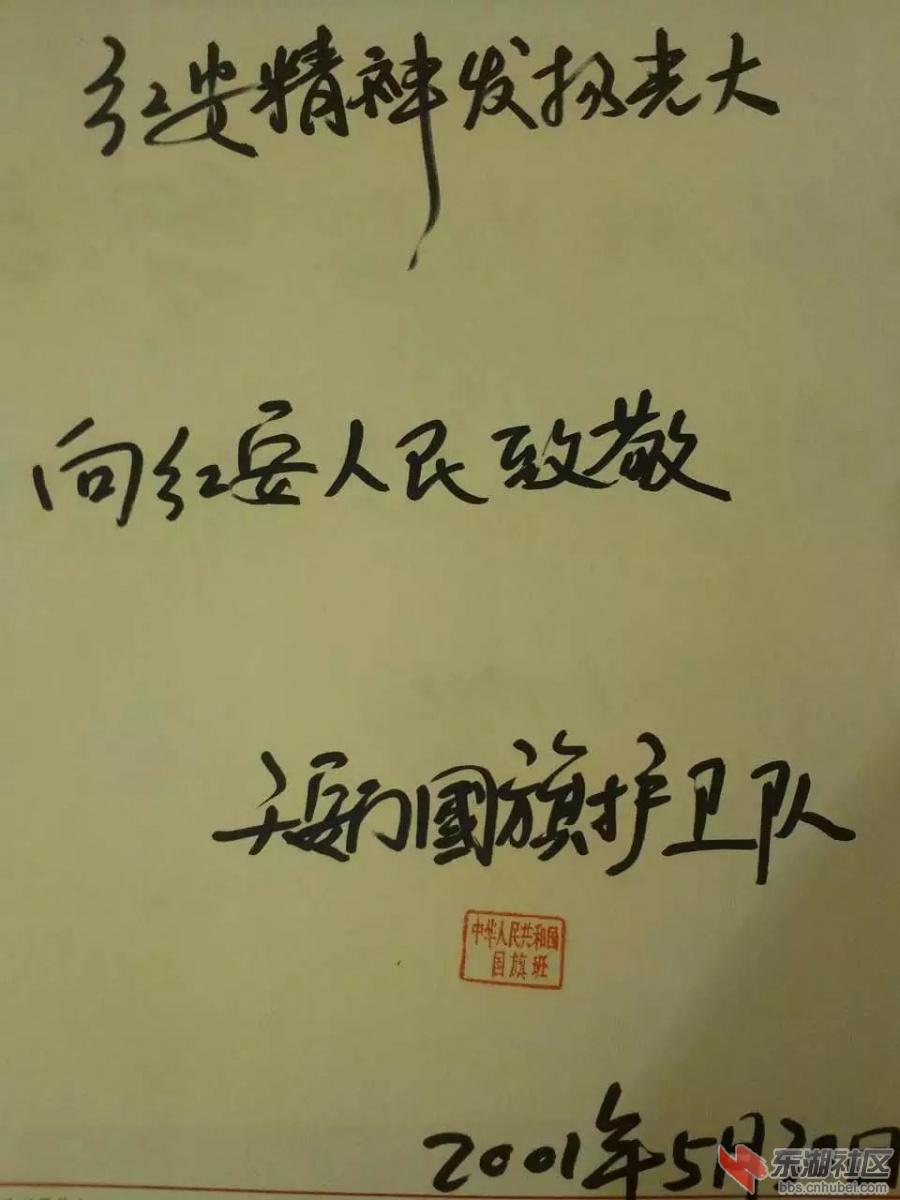 红安精神发扬光大
向红安人民致敬
天安门國旗护卫队
中华人民共和国
国旗班
2001年5月20日
东湖社区
bbs.cnhubei.com